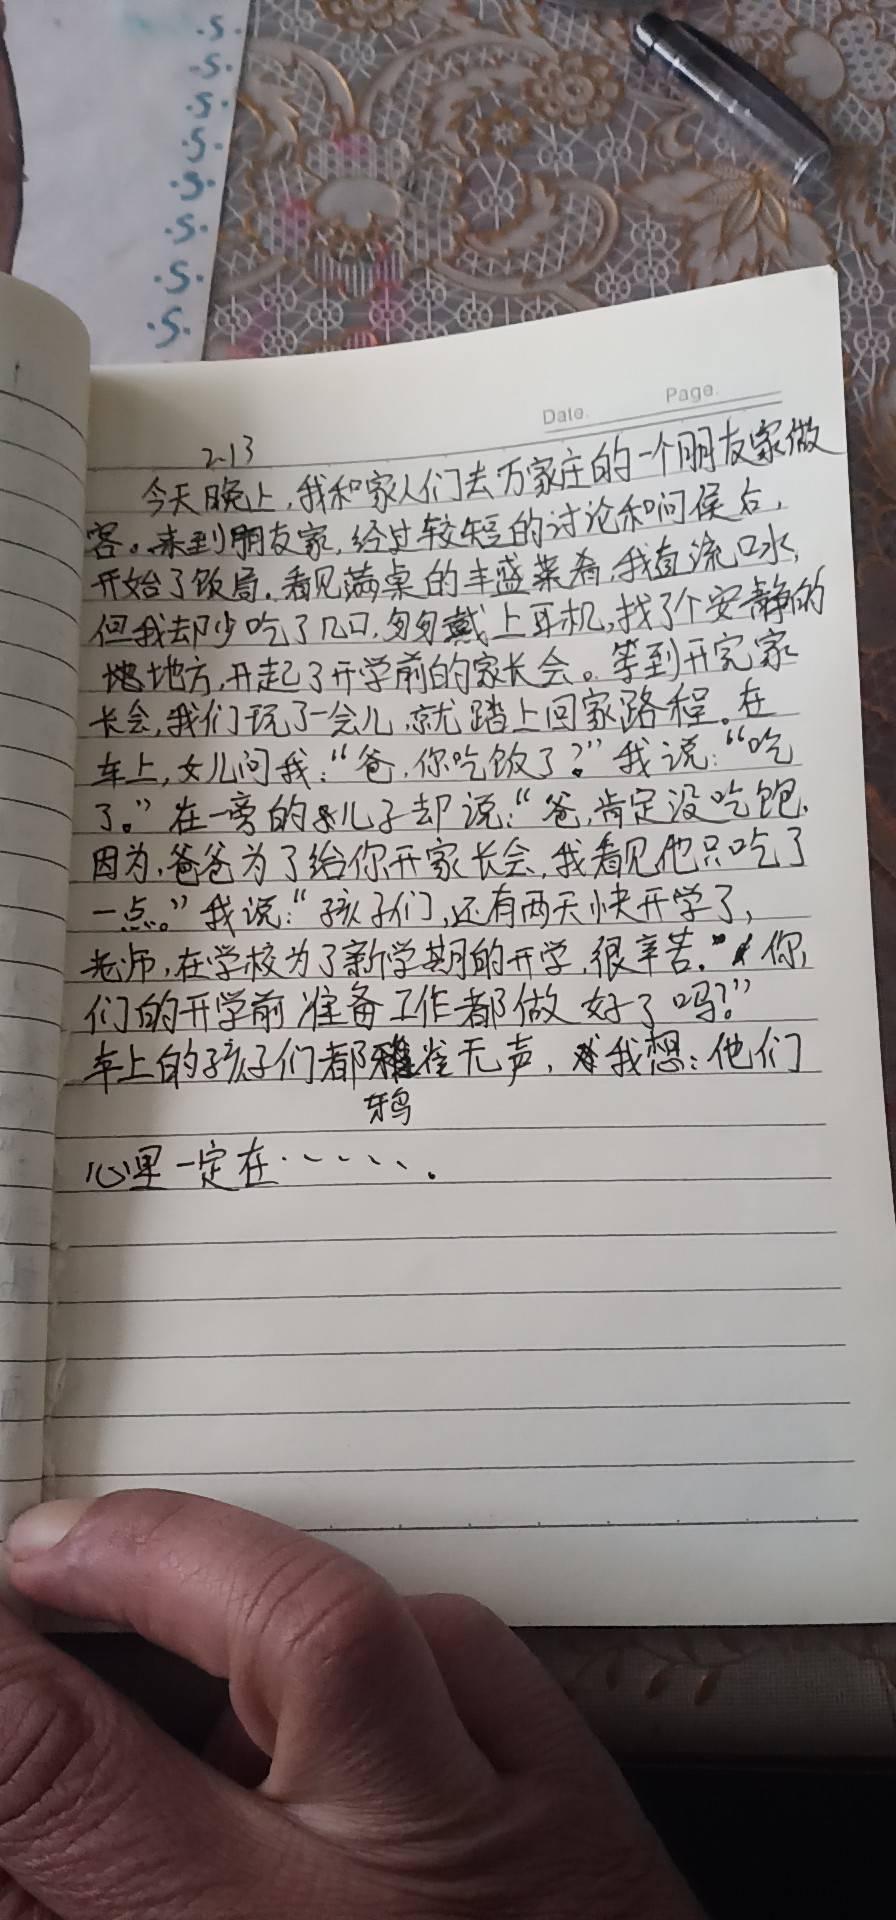 ·S·
·S·
·S·
·S·
·S·
·S·
·S·
·S·
Date. Page.
2.13
今天晚上,我和家人们去万家庄的一个朋友家做
客。来到朋友家,经过较短的讨论和问候后,
开始了饭局.看见满桌的丰盛菜肴,我直流口水,
但我却少吃了几口,匆匆戴上耳机,找了个安静的
地方,开起了开学前的家长会。等到开完家
长会,我们玩了一会儿,就踏上回家路程。在
车上,女儿问我:“爸,你吃饭了?”我说:“吃
了。”在一旁的儿子却说:“爸,肯定没吃饱,
因为,爸爸为了给你开家长会,我看见他只吃了
一点。”我说:“孩子们,还有两天快开学了,
老师,在学校为了新学期的开学,很辛苦.”你
们的开学前准备工作都做好了吗?”
车上的孩子们都鸦雀无声,我想:他们
心里一定在······.